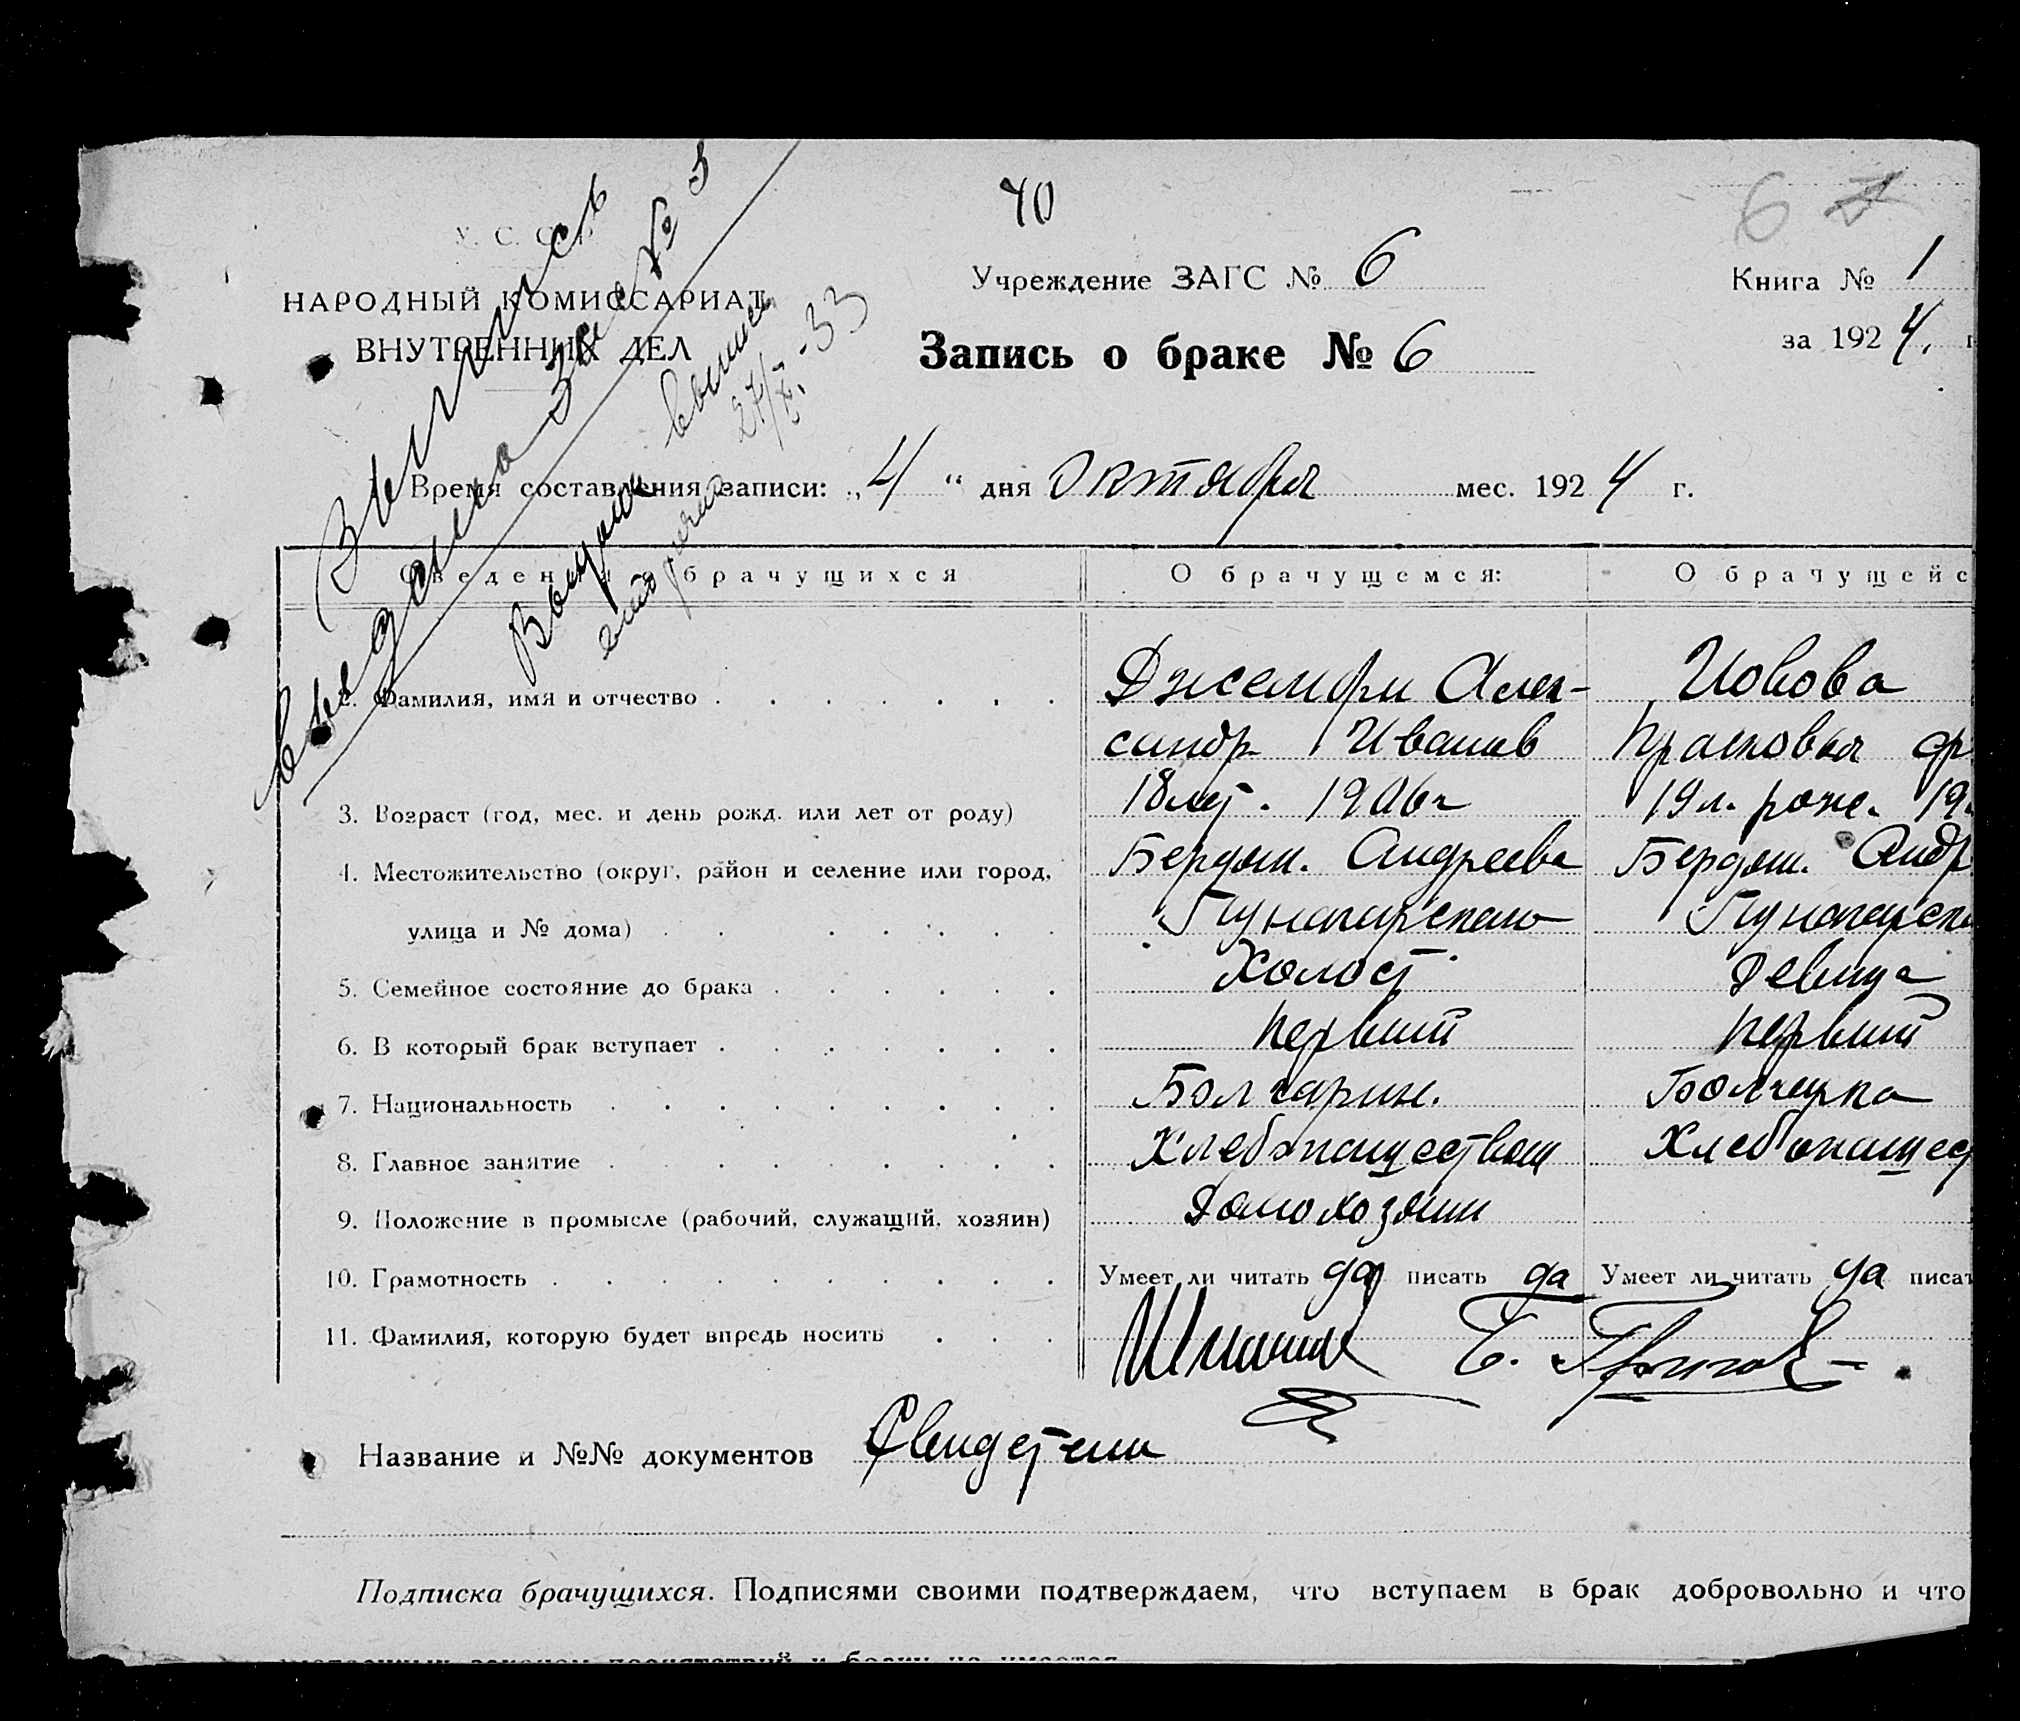 40
6
У. С. С. Р.
НАРОДНЫЙ КОМИССАРИАТ
ВНУТРЕННИХ ДЕЛ
Выпись
выдана № 3
Выдана выпись
вторично 27/X-33
Учреждение ЗАГС № 6
Книга № 1
Запись о браке № 6
за 1924. г
Время составления записи: „4“ дня Октября мес. 1924 г.
Сведения о брачущихся
О брачущемся:
О брачущейс
2. Фамилия, имя и отчество
Алек-
сандр Иванов
Иовова
Прасковья
3. Возраст (год, мес. и день рожд. или лет от роду)
18 лет. 1906 г
19 л. рож. 19
4. Местожительство (округ, район и селение или город,
улица и № дома)
Бердян. Андреевс
Луначарского
Бердян. Андр
Луначарск
5. Семейное состояние до брака
Холост
Девица
6. В который брак вступает
первый
первый
7. Национальность
Болгарин.
Болгарка
8. Главное занятие
Хлебопашеством
Хлебопашест
9. Положение в промысле (рабочий, служащий, хозяин)
Домохозяин
10. Грамотность
Умеет ли читать да писать да
Умеет ли читать да писат
11. Фамилия, которую будет впредь носить
Название и №№ документов Свидетели
Подписка брачущихся. Подписями своими подтверждаем, что вступаем в брак добровольно и что
законом препятствий к браку не имеется